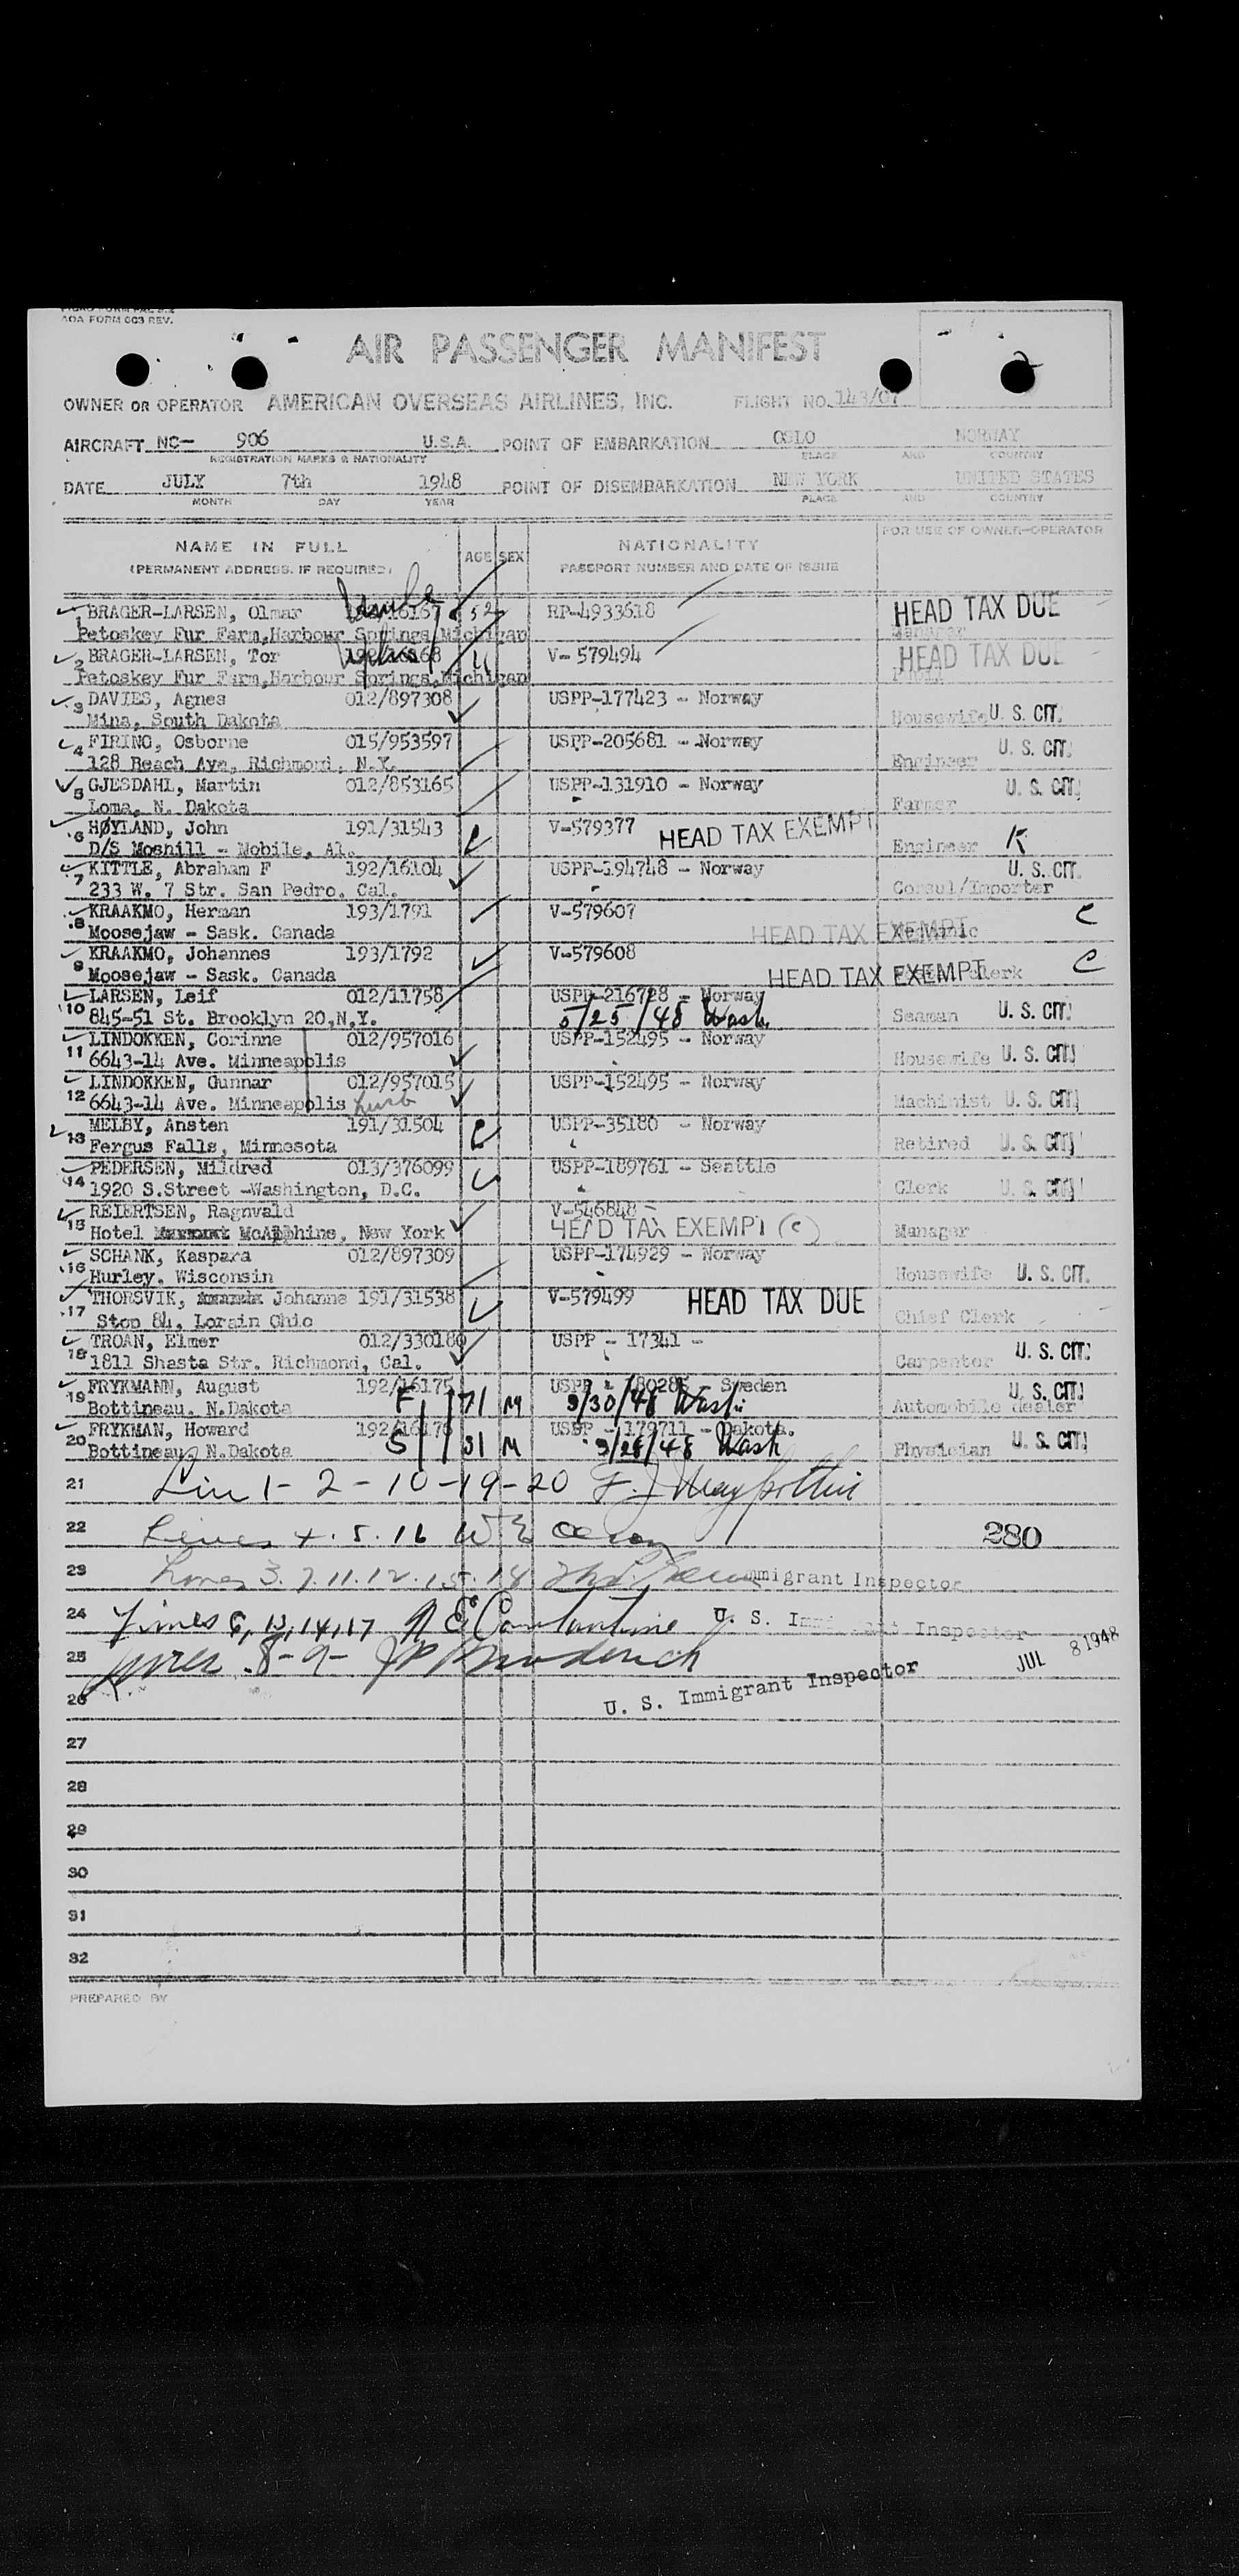 AOA FORM 003 REV.
AIR PASSENGER MANIFEST
OWNER OR OPERATOR AMERICAN OVERSEAS AIRLINES, INC. FLIGHT NO. 143/07
AIRCRAFT NC- 906 U.S.A. POINT OF EMBARKATION OSLO NORWAY
REGISTRATION MARKS & NATIONALITY PLACE AND COUNTRY
DATE JULY 7th 1948 POINT OF DISEMBARKATION NEW YORK UNITED STATES
MONTH DAY YEAR PLACE AND COUNTRY
NAME IN FULL AGE SEX NATIONALITY FOR USE OF OWNER-OPERATOR
(PERMANENT ADDRESS, IF REQUIRED) PASSPORT NUMBER AND DATE OF ISSUE
1 BRAGER-LARSEN, Olmar 52 RP-4933618 HEAD TAX DUE
Petoskey Fur Farm, Harbour Springs, Michigan Manager
2 BRAGER-LARSEN, Tor V- 579494 HEAD TAX DUE
Petoskey Fur Farm, Harbour Springs, Michigan
3 DAVIES, Agnes 012/897308 USPP-177423 - Norway
Mina, South Dakota Housewife U. S. CIT.
4 FIRING, Osborne 015/953597 USPP-205681 - Norway U. S. CIT.
128 Beach Ave, Richmond, N.Y. Engineer
5 GJESDAHL, Martin 012/853165 USPP-131910 - Norway U. S. CIT.
Loma, N. Dakota Farmer
6 HØYLAND, John 191/31543 V-579377 HEAD TAX EXEMPT
D/S Moshill - Mobile, Al. Engineer K
7 KITTLE, Abraham F 192/16104 USPP-194748 - Norway U. S. CIT.
233 W. 7 Str. San Pedro, Cal. Consul/Importer
8 KRAAKMO, Herman 193/1791 V-579607 C
Moosejaw - Sask. Canada HEAD TAX EXEMPT
9 KRAAKMO, Johannes 193/1792 V-579608 C
Moosejaw - Sask. Canada HEAD TAX EXEMPT Clerk
10 LARSEN, Leif 012/11758 USPP-216728 - Norway
845-51 St. Brooklyn 20, N.Y. 5/25/48 Wash. Seaman U. S. CIT.
11 LINDOKKEN, Corinne 012/957016 USPP-152495 - Norway
6643-14 Ave. Minneapolis Housewife U. S. CIT.
12 LINDOKKEN, Gunnar 012/957015 USPP-152495 - Norway
6643-14 Ave. Minneapolis husb Machinist U. S. CIT.
13 MELBY, Ansten 191/31504 USPP-35180 - Norway
Fergus Falls, Minnesota Retired U. S. CIT.
14 PEDERSEN, Mildred 013/376099 USPP-189761 - Seattle
1920 S.Street -Washington, D.C. Clerk U. S. CIT.
15 REIERTSEN, Ragnvald V-546848 -
Hotel McAlphine, New York HEAD TAX EXEMPT (C) Manager
16 SCHANK, Kaspara 012/897309 USPP-174929 - Norway
Hurley, Wisconsin Housewife U. S. CIT.
17 THORSVIK, Johanne 191/31538 V-579499 HEAD TAX DUE
Stop 84, Lorain Ohio Chief Clerk
18 TROAN, Elmer 012/330180 USPP - 17341 -
1811 Shasta Str. Richmond, Cal. Carpenter U. S. CIT.
19 FRYKMANN, August 192/16175 USPP - Sweden U. S. CIT.
Bottineau, N.Dakota F 71 M 3/30/48 Wash. Automobile dealer
20 FRYKMAN, Howard 192/16176 USPP - 179711 - Dakota.
Bottineau, N.Dakota S 31 M 3/26/48 Wash Physician U. S. CIT.
21 Lin 1 - 2 - 10 - 19 - 20
22 Lines 4. 5. 16 280
23 Lines 3. 7. 11. 12. 15. 18 Immigrant Inspector
24 Lines 6, 13, 14, 17 N E Constantine U. S. Immigrant Inspector
25 Lines 8 - 9 - J P Broderick JUL 8 1948
26 U. S. Immigrant Inspector
27
28
29
30
31
32
PREPARED BY